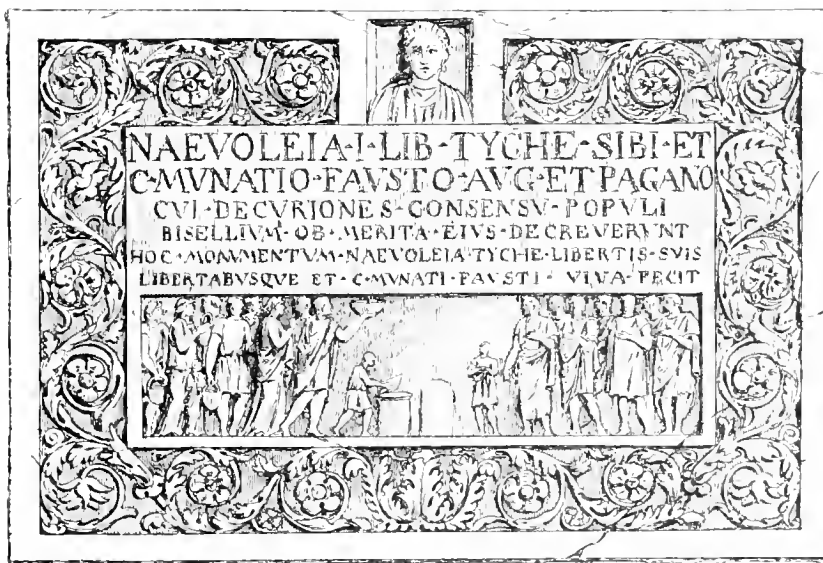 NAEVOLEIA·I·LIB·TYCHE·SIBI·ET
C·MVNATIO·FAVSTO·AVG·ET·PAGANO
CVI·DECVRIONES·CONSENSV·POPVLI
BISELLIVM·OB·MERITA·EIVS·DECREVERVNT
HOC·MONVMENTVM·NAEVOLEIA·TYCHE·LIBERTIS·SVIS
LIBERTABVSQVE·ET·C·MVNATI·FAVSTI·VIVA·FECIT